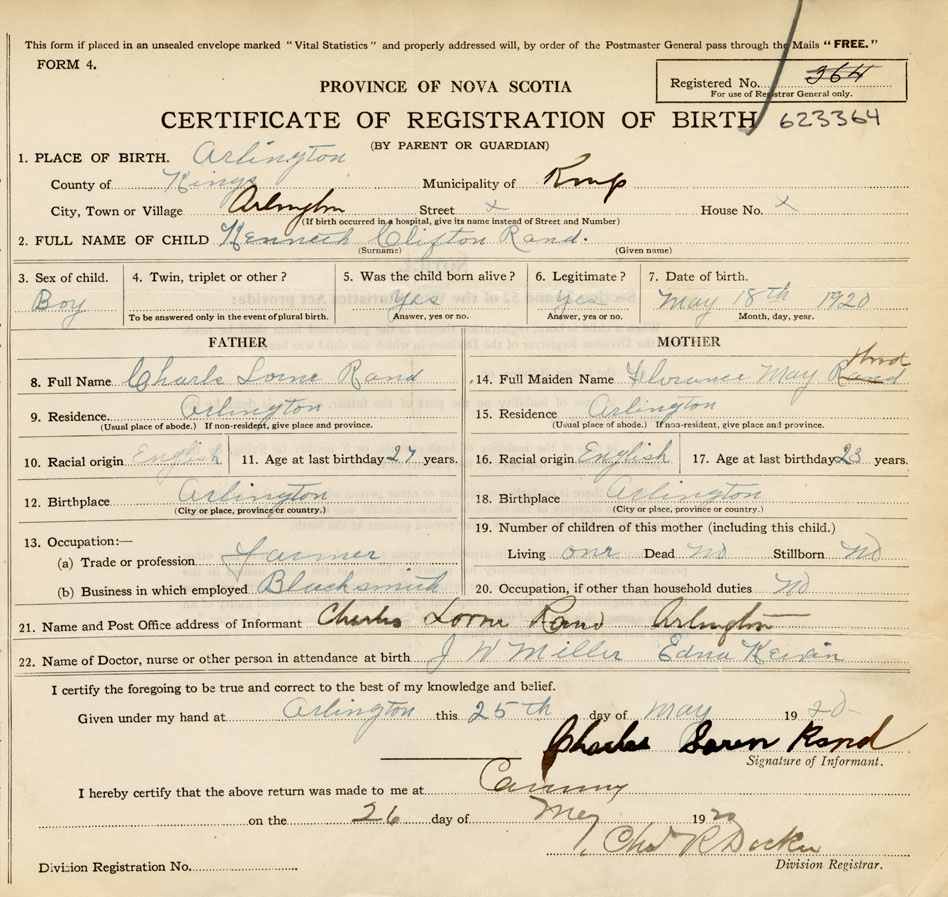 This form if placed in an unsealed envelope marked "Vital Statistics" and properly addressed will, by order of the Postmaster General pass through the Mails "FREE."
FORM 4.
Registered No. 364
For use of Registrar General only.
PROVINCE OF NOVA SCOTIA
CERTIFICATE OF REGISTRATION OF BIRTH 623364
(BY PARENT OR GUARDIAN)
1. PLACE OF BIRTH. Arlington
County of Kings Municipality of Kings
City, Town or Village Arlington Street x House No. x
(If birth occurred in a hospital, give its name instead of Street and Number)
2. FULL NAME OF CHILD Kenneth Clifton Rand.
(Surname) (Given name)
3. Sex of child. 4. Twin, triplet or other? 5. Was the child born alive? 6. Legitimate? 7. Date of birth.
Boy Yes Yes May 18th 1920
To be answered only in the event of plural birth. Answer, yes or no. Answer, yes or no. Month, day, year.
FATHER MOTHER
8. Full Name Charls Lorne Rand 14. Full Maiden Name Florance May Rand
9. Residence. Arlington 15. Residence Arlington
(Usual place of abode.) If non-resident, give place and province. (Usual place of abode.) If non-resident, give place and province.
10. Racial origin English 11. Age at last birthday 27 years. 16. Racial origin English 17. Age at last birthday 23 years.
12. Birthplace Arlington 18. Birthplace Arlington
(City or place, province or country.) (City or place, province or country.)
13. Occupation:— 19. Number of children of this mother (including this child.)
(a) Trade or profession Farmer Living one Dead no Stillborn no
(b) Business in which employed Blacksmith 20. Occupation, if other than household duties No
21. Name and Post Office address of Informant Charles Lorne Rand Arlington
22. Name of Doctor, nurse or other person in attendance at birth J W Miller Edna
I certify the foregoing to be true and correct to the best of my knowledge and belief.
Given under my hand at Arlington this 25th day of May 1920
Charles Loren Rand
Signature of Informant.
I hereby certify that the above return was made to me at Canning
on the 26 day of May 1920
Chas R
Division Registration No. Division Registrar.